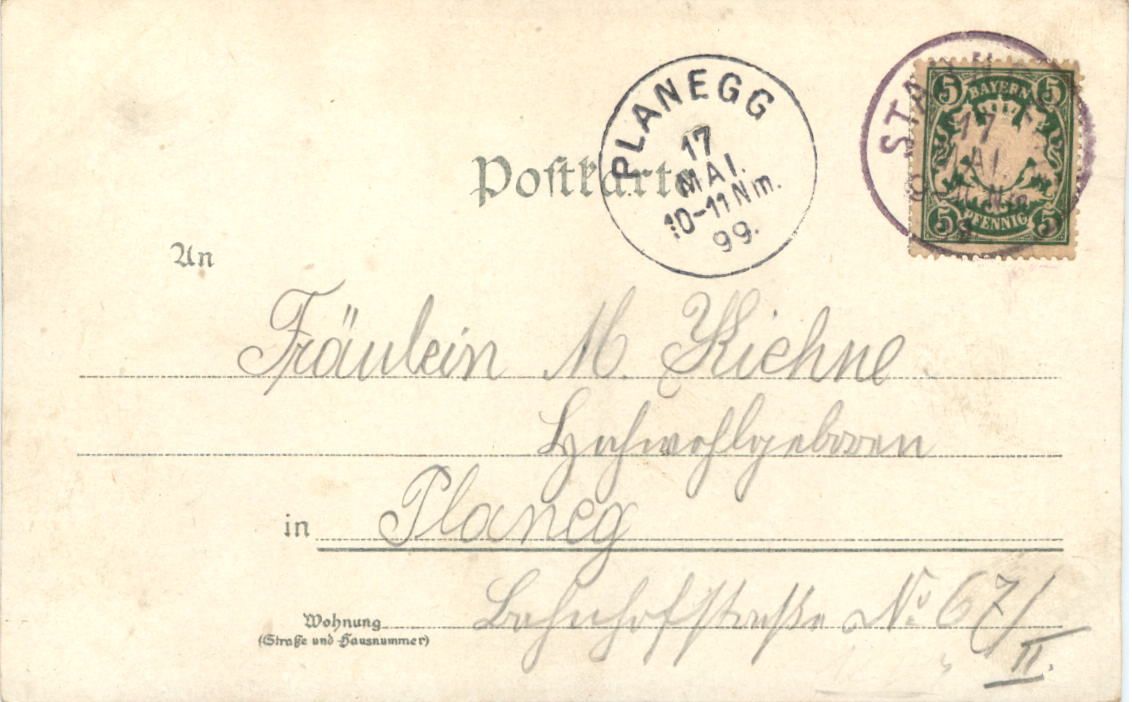 PLANEGG
17
MAI.
10-11 Nm.
99.
STA
17
5 5
BAYERN
PFENNIG
5 5
Postkarte
An
Fräulein M. Kiehne
Hochwohlgeboren
in Planeg
Bahnhofstraße No 67/
II.
Wohnung
(Straße und Hausnummer)